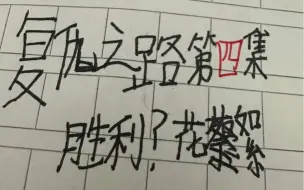 复仇之路第四集
胜利？花蘩如